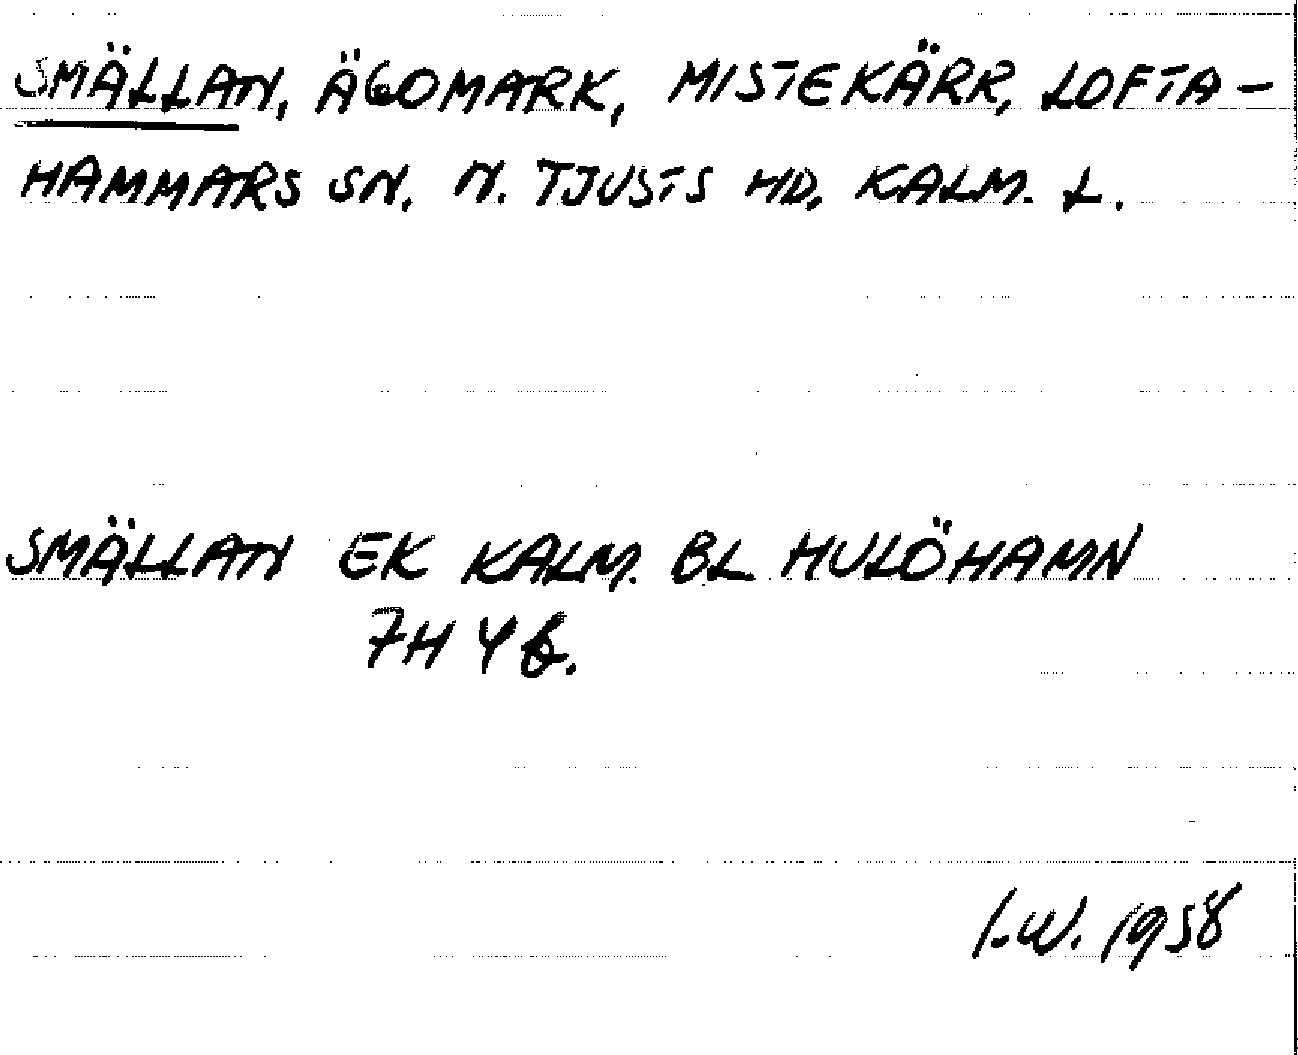 SMÄLLAN, ÄGOMARK, MISTEKÄRR, LOFTA-
HAMMARS SN. N. TJUSTS HD, KALM. L.
SMÄLLAN EK KALM. BL HULÖHAMN
7H 4 f.
I.W. 1958